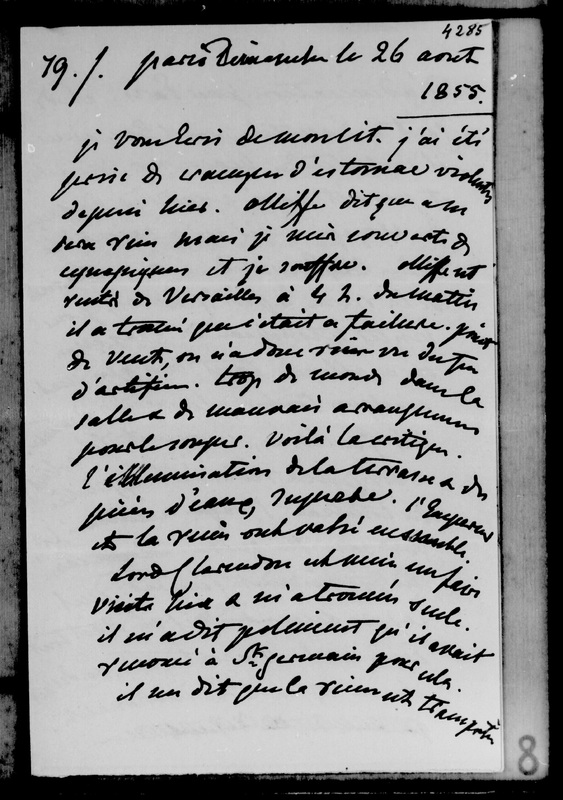 4285
79. /. paris Dimanche le 26 aout
1855.
je vous ecris de mon lit. j'ai été
prise de crampes d'estomac violentes
depuis hier. Oliffe dit que ce ne
sera rien mais je suis couverte de
synapismes et je souffre. Oliffe est
rentré de Versailles à 4 h. du matin
il a trouvé que c'était a failure. point
de vent, on n'a donc rien vu du feu
d'artifice. trop de monde dans la
salle & de mauvais arrangements
pour le souper. Voilà la critique.
l'illumination de la terrasse & des
pièces d'eaux, superbe. l'Empereur
et la reine ont valsé ensemble.
Lord Clarendon est venu me faire
visite hier & m'a trouvée seule.
il m'a dit poliment qu'il avait
renoncé à St germain pour cela.
il me dit que la reine est transportée
8